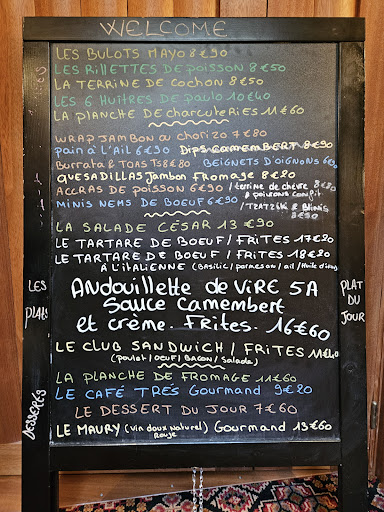 WELCOME
LES BULOTS MAYO 8€90
LES RILLETTES DE POISSON 8€50
LA TERRINE DE COCHON 8€50
LES 6 HUITRES DE PAULO 10€40
LA PLANCHE DE charcuteries 11€60
WRAP JAMBON OU CHORIZO 7€80
PAIN À L'AIL 6€90 DIPS CAMEMBERT 8€90
Burrata & TOASTS 8€80 BEIGNETS D'OIGNONS 6€90
QUESADILLAS Jambon fromage 8€20
ACCRAS DE POISSON 6€90 / terrine de chèvre 8€20
& poivrons confit
MINIS NEMS DE BOEUF 6€90 / TZATZIK & Blinis
8€50
LA SALADE CÉSAR 13€90
LE TARTARE DE BOEUF / FRITES 17€20
LE TARTARE DE BOEUF / FRITES 18€20
À L'ITALIENNE (Basilic / parmesan / ail / Huile d'olive)
LES PLATS
ANdouillette de VIRE 5A
Sauce Camembert
et crème. FRites. 16€60
PLAT DU JOUR
LE CLUB SANDWICH / FRITES
(poulet / OEUF / BACON / Salade)
LA PLANCHE DE FROMAGE 11€60
LE CAFÉ TRÉS Gourmand 9€20
LE DESSERT DU JOUR 7€60
DESSERTS
LE MAURY (vin doux naturel) Gourmand 13€60
Rouge